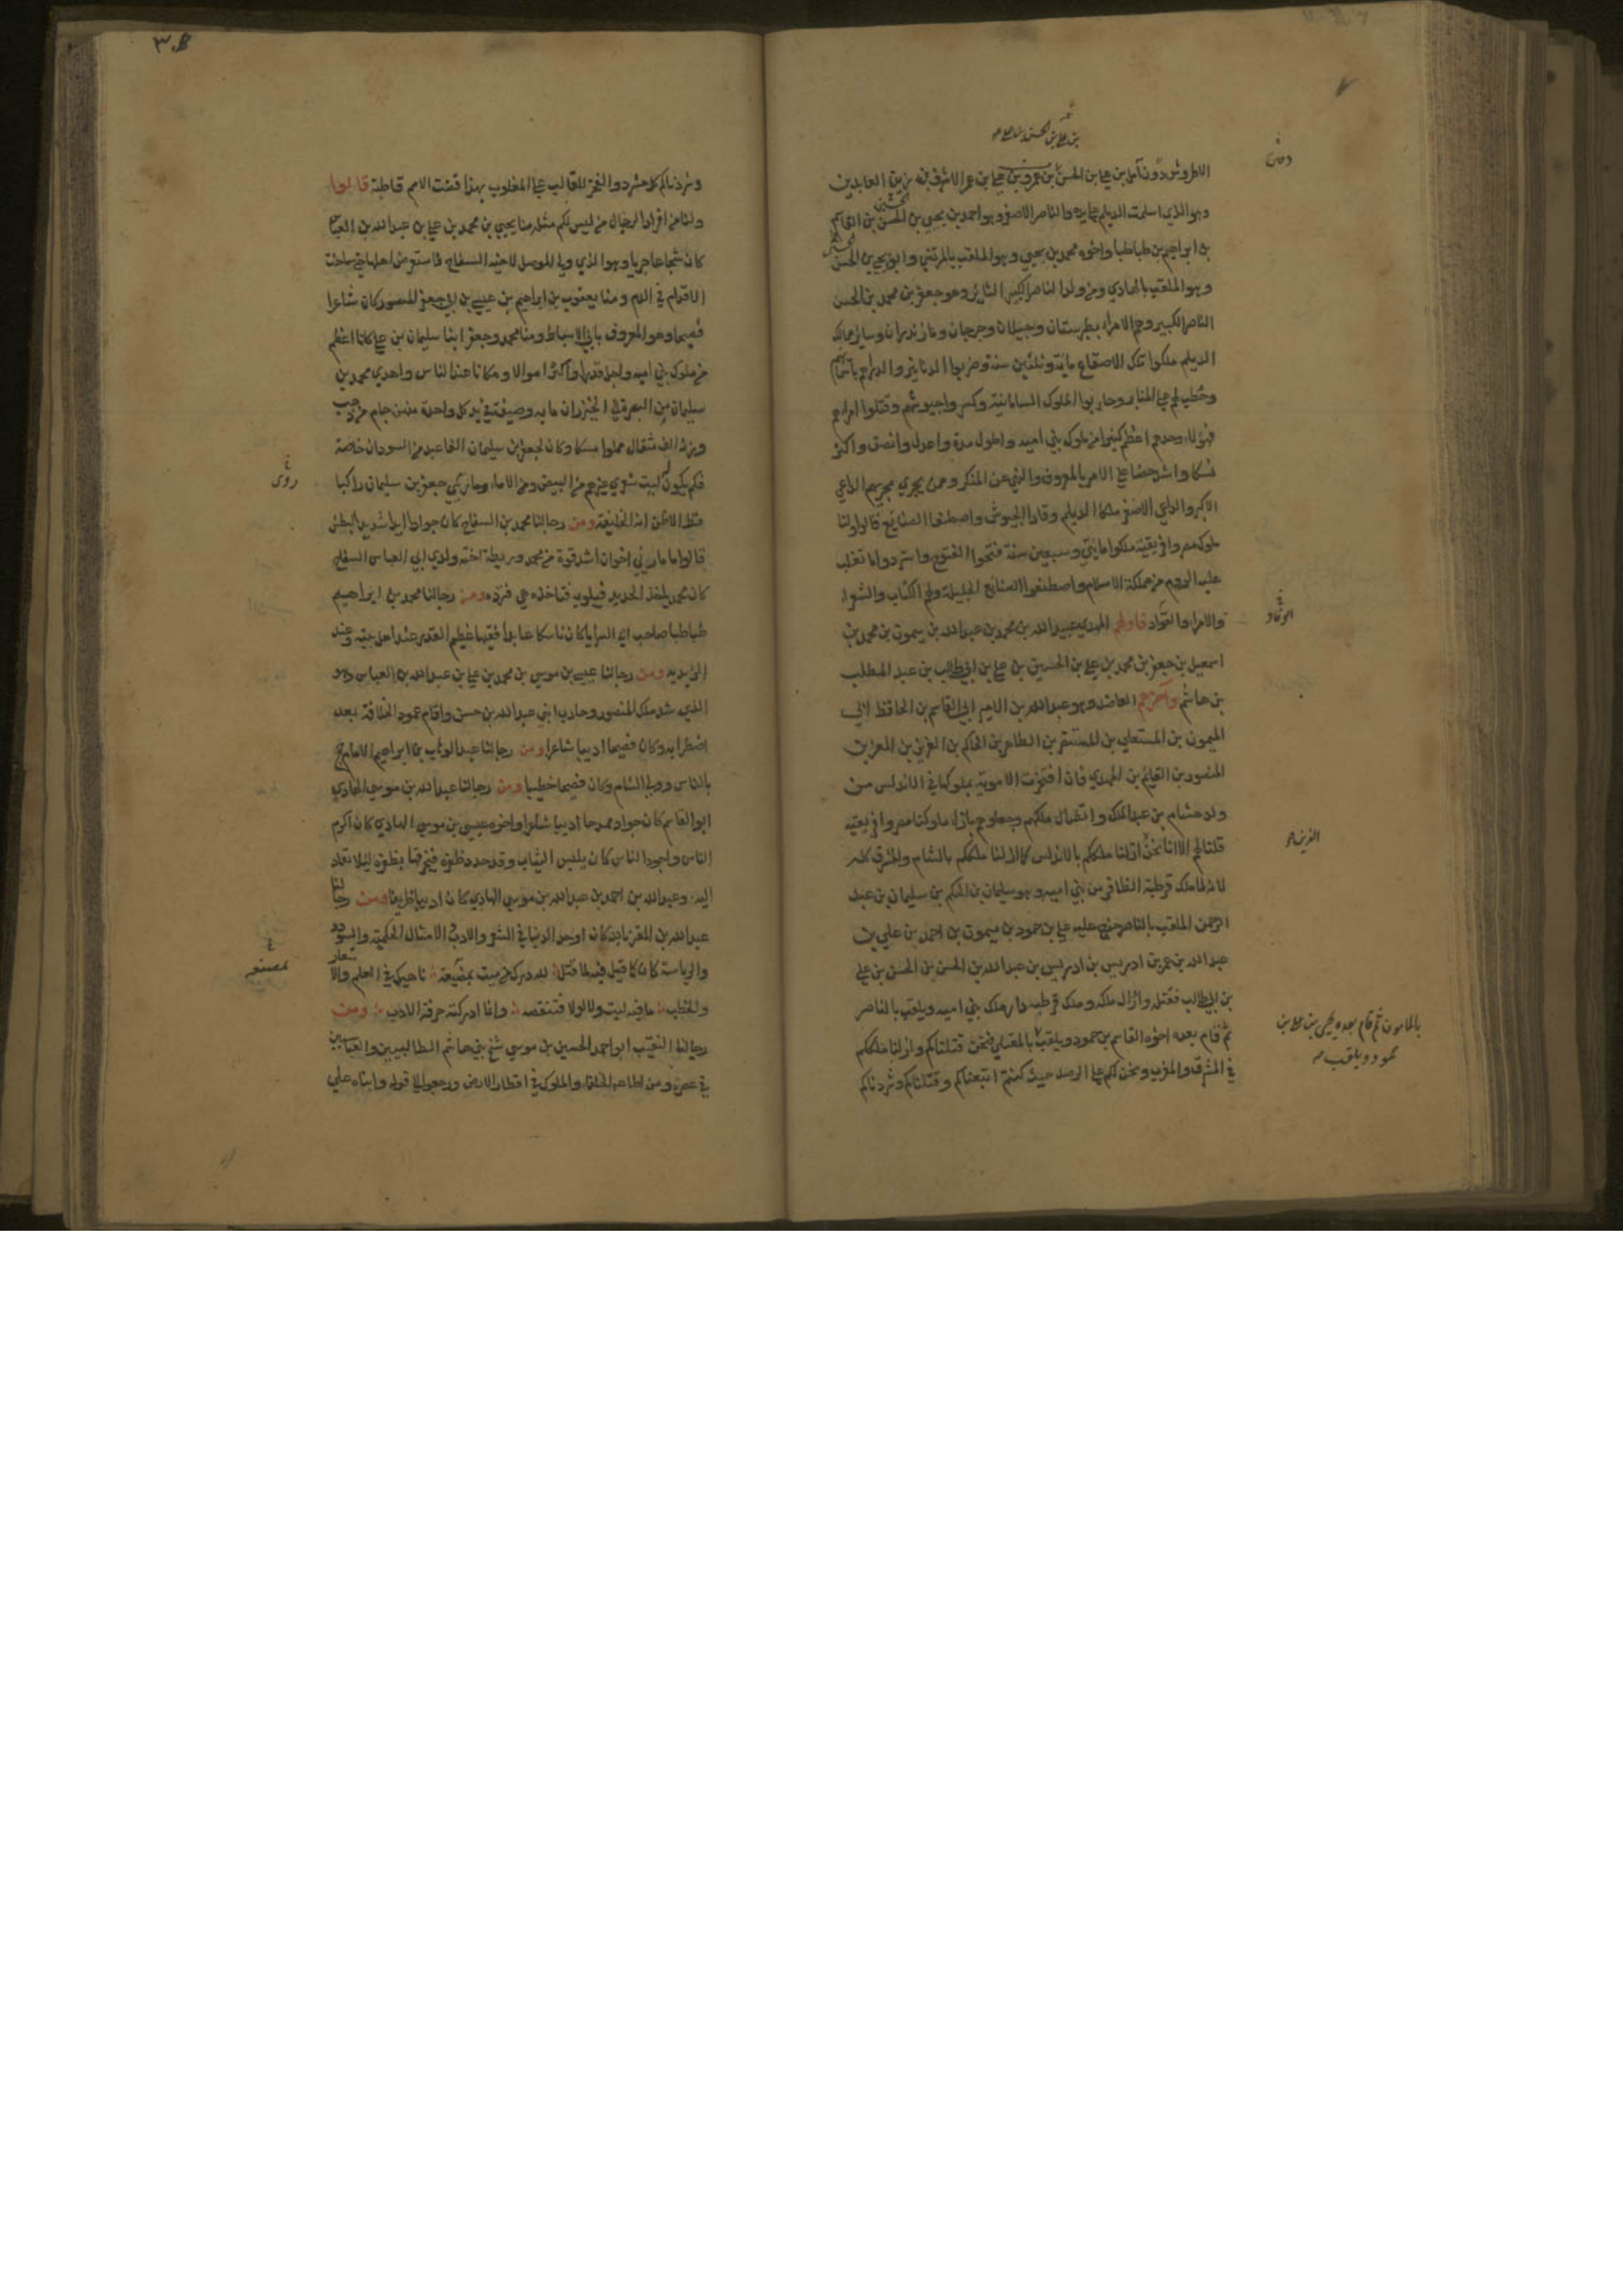 بن علي بن الحسين بن
الاطروش دون آمل بن علي بن الحسن بن عمرو بن علي بن عمر الاشرف بن زين العابدين
وهو الذي اسلمت الديلم على يده والناصر الاصغر وهو احمد بن يحيى بن الحسن بن القاسم
بن ابراهيم بن طباطبا واخوه محمد بن يحيى وهو الملقب بالمرتضى وابوه يحيى بن الحسن
وهو الملقب بالهادي ومن ولد الناصر الكبير الثائر وهو جعفر بن محمد بن الحسن
الناصر الكبير وهم الامراء بطبرستان وجيلان وجرجان ومازندران وساير ممالك
الديلم ملكوا تلك الاصقاع ماية وثلثين سنة وضربوا الدنانير والدراهم باسمائهم
وخطب لهم على المنابر وحاربوا الملوك السامانية وكسروا جيوشهم وقتلوا امراءهم
فهؤلاء وحدهم اعظم كثيرا من ملوك بني اميه واطول مدة واعدل وانصف واكثر
نسكا واشد حضا على الامر بالمعروف والنهي عن المنكر وممن يجري مجريهم الداعي
الاكبر والداعي الاصغر ملكا الديلم وقادا الجيوش واصطنعا الصنايع قالوا ولنا
ملوك مصر وافريقية ملكوا مايتي وسبعين سنة فتحوا الفتوح واستردوا ما تغلب
عليه الروم من مملكة الاسلام واصطنعوا الصنايع الجليلة ولهم الكتاب والشعراء
والامراء والقواد فاولهم المهدي عبيد الله بن محمد بن عبد الله بن ميمون بن محمد بن
اسمعيل بن جعفر بن محمد بن علي بن الحسين بن علي بن ابي طالب بن عبد المطلب
بن هاشم وآخرهم العاضد وهو عبد الله بن الامير ابي القاسم بن الحافظ ابي
الميمون بن المستعلي بن المستنصر بن الطاهر بن الحاكم بن العزيز بن المعز بن
المنصور بن القايم بن المهدي فان افتخرت الاموية بملوكها في الاندلس من
ولد هشام بن عبد الملك واتصال ملكهم وجعلوهم بازاء ملوكنا بمصر وافريقيه
قلنا لهم الا انا نحن ازلنا ملككم بالاندلس كما ازلنا ملككم بالشام والمشرق كله
لانه لما ملك قرطبة الظافر من بني اميه وهو سليمان بن الحكم بن سليمان بن عبد
الرحمن الملقب بالناصر خرج عليه علي بن حمود بن ميمون بن احمد بن علي بن
عبد الله بن عمر بن ادريس بن ادريس بن عبد الله بن الحسن بن الحسن بن علي
بن ابي طالب فقتله وازال ملكه وملك قرطبه دار ملك بني اميه ويلقب بالناصر
ثم قام بعده اخوه القاسم بن حمود ويلقب بالمعتلي فنحن قتلناكم وازلنا ملككم
في المشرق والمغرب ونحن لكم على الرصد حيث كنتم اتبعناكم وقتلناكم وشردناكم
بالمامون ثم قام بعده يحيى بن علي بن
حمود ويلقب
٣٠٨
وشردناكم كل مشرد والفخر للغالب على المغلوب بهذا قضت الامم قاطبة قالوا
ولنا من افراد الرجال من ليس لكم مثله منا يحيى بن محمد بن علي بن عبد الله بن العباس
كان شجاعا جريا وهو الذي ولي الموصل لاخيه السفاح فاستعرض اهلها حتى ساخت
الاقدام في الدم ومنا يعقوب بن ابراهيم بن عيسى بن ابي جعفر المنصور كان شاعرا
فصيحا وهو المعروف بابي الاسباط ومنا محمد وجعفر ابنا سليمان بن علي كانا اعظم
من ملوك بني اميه واجل قدرا واكثر اموالا ومكانا عند الناس واهدى محمد بن
سليمان من البصرة الى الخيزران مايه وصيفة في يد كل واحدة منهن جام من ذهب
وزنه الف مثقال مملوا مسكا وكان لجعفر بن سليمان الفا عبد من السودان خاصة
فكم يكون ليت شعري غيرهم من البيض ومن الاماء وما رئي جعفر بن سليمان راكبا
قط الا ظن انه الخليفة ومن رجالنا محمد بن السفاح كان جوادا ايدا شديد البطش
قالوا ما رئي اخوان اشد قوة من محمد وريطة اخته ولدي ابي العباس السفاح
كان محمد ياخذ الحديد فيلويه فتاخذه هي فترده ومن رجالنا محمد بن ابراهيم
طباطبا صاحب ابي السرايا كان ناسكا عابدا فقيها عظيم القدر عند اهل بيته وعند
الزيديه ومن رجالنا عيسى بن موسى بن محمد بن علي بن عبد الله بن العباس وهو
الذي شد ملك المنصور وحارب ابني عبد الله بن حسن واقام عمود الخلافة بعد
اضطرابه وكان فصيحا اديبا شاعرا ومن رجالنا عبد الوهاب بن ابراهيم الامام حج
بالناس وولي الشام وكان فصيحا خطيبا ومن رجالنا عبد الله بن موسى الهادي
ابو القاسم كان جوادا ممدحا اديبا شاعرا واخوه عيسى بن موسى الهادي كان اكرم
الناس واجود الناس كان يلبس الثياب وقد حدد ظفره فيخرقها بظفره ليلا تعاد
اليه وعبد الله بن احمد بن عبد الله بن موسى الهادي كان اديبا ظريفا ومن رجالنا
عبد الله بن المعتز بالله كان اوحد الدنيا في الشعر والادب والامثال الحكمية والسودد
والرياسة كان كما قيل فيه لما قتل لله درك من ميت بمضيعة ناهيك في العلم والاشعار
والخطب ما فيه ليت ولا لولا فتنقصه وانما ادركته حرفة الادب ومن
رجالنا النقيب ابو احمد الحسين بن موسى شيخ بني هاشم الطالبيين والعباسيين
في عصره ومن اطاعه الخلفاء والملوك في اقطار الارض ورجعوا الى قوله وابناه علي
روى